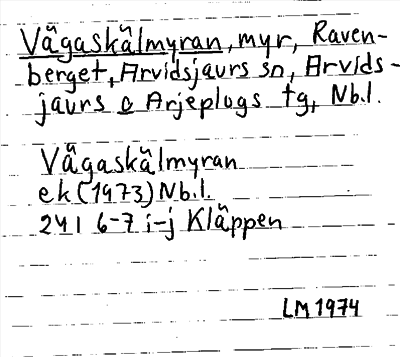 Vägaskälmyran, myr, Raven-
berget, Arvidsjaurs sn, Arvids-
jaurs o Arjeplogs tg, Nb.l.
Vägaskälmyran
ek (1973) Nb.l.
24 I 6-7 i-j Kläppen
LM 1974